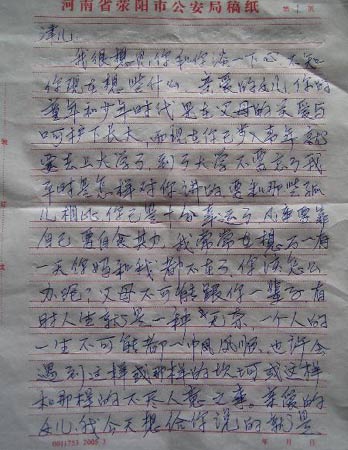 河南省荥阳市公安局稿纸
第 1 页
津儿:
我很想跟你和你谈一下心,不知
你现在想些什么,亲爱的女儿,你的
童年和少年时代是在父母的关爱与
呵护下长大,而现在你已步入青年,就
要去上大学了,到了大学不要忘了我
平时是怎样对你讲的,要和那些孤
儿相比你已是十分幸运了,凡事要靠
自己,要自食其力,我常常在想,万一有
一天你妈和我都不在了,你该怎么
办呢?父母不可能跟你一辈子,有
时人生就是一种无奈,一个人的
一生不可能都一帆风顺,也许会
遇到这样或那样的坎坷或这样
和那样的不尽人意之事。亲爱的
女儿,我今天想给你说的就是
0011753 2005.3
年 月 日